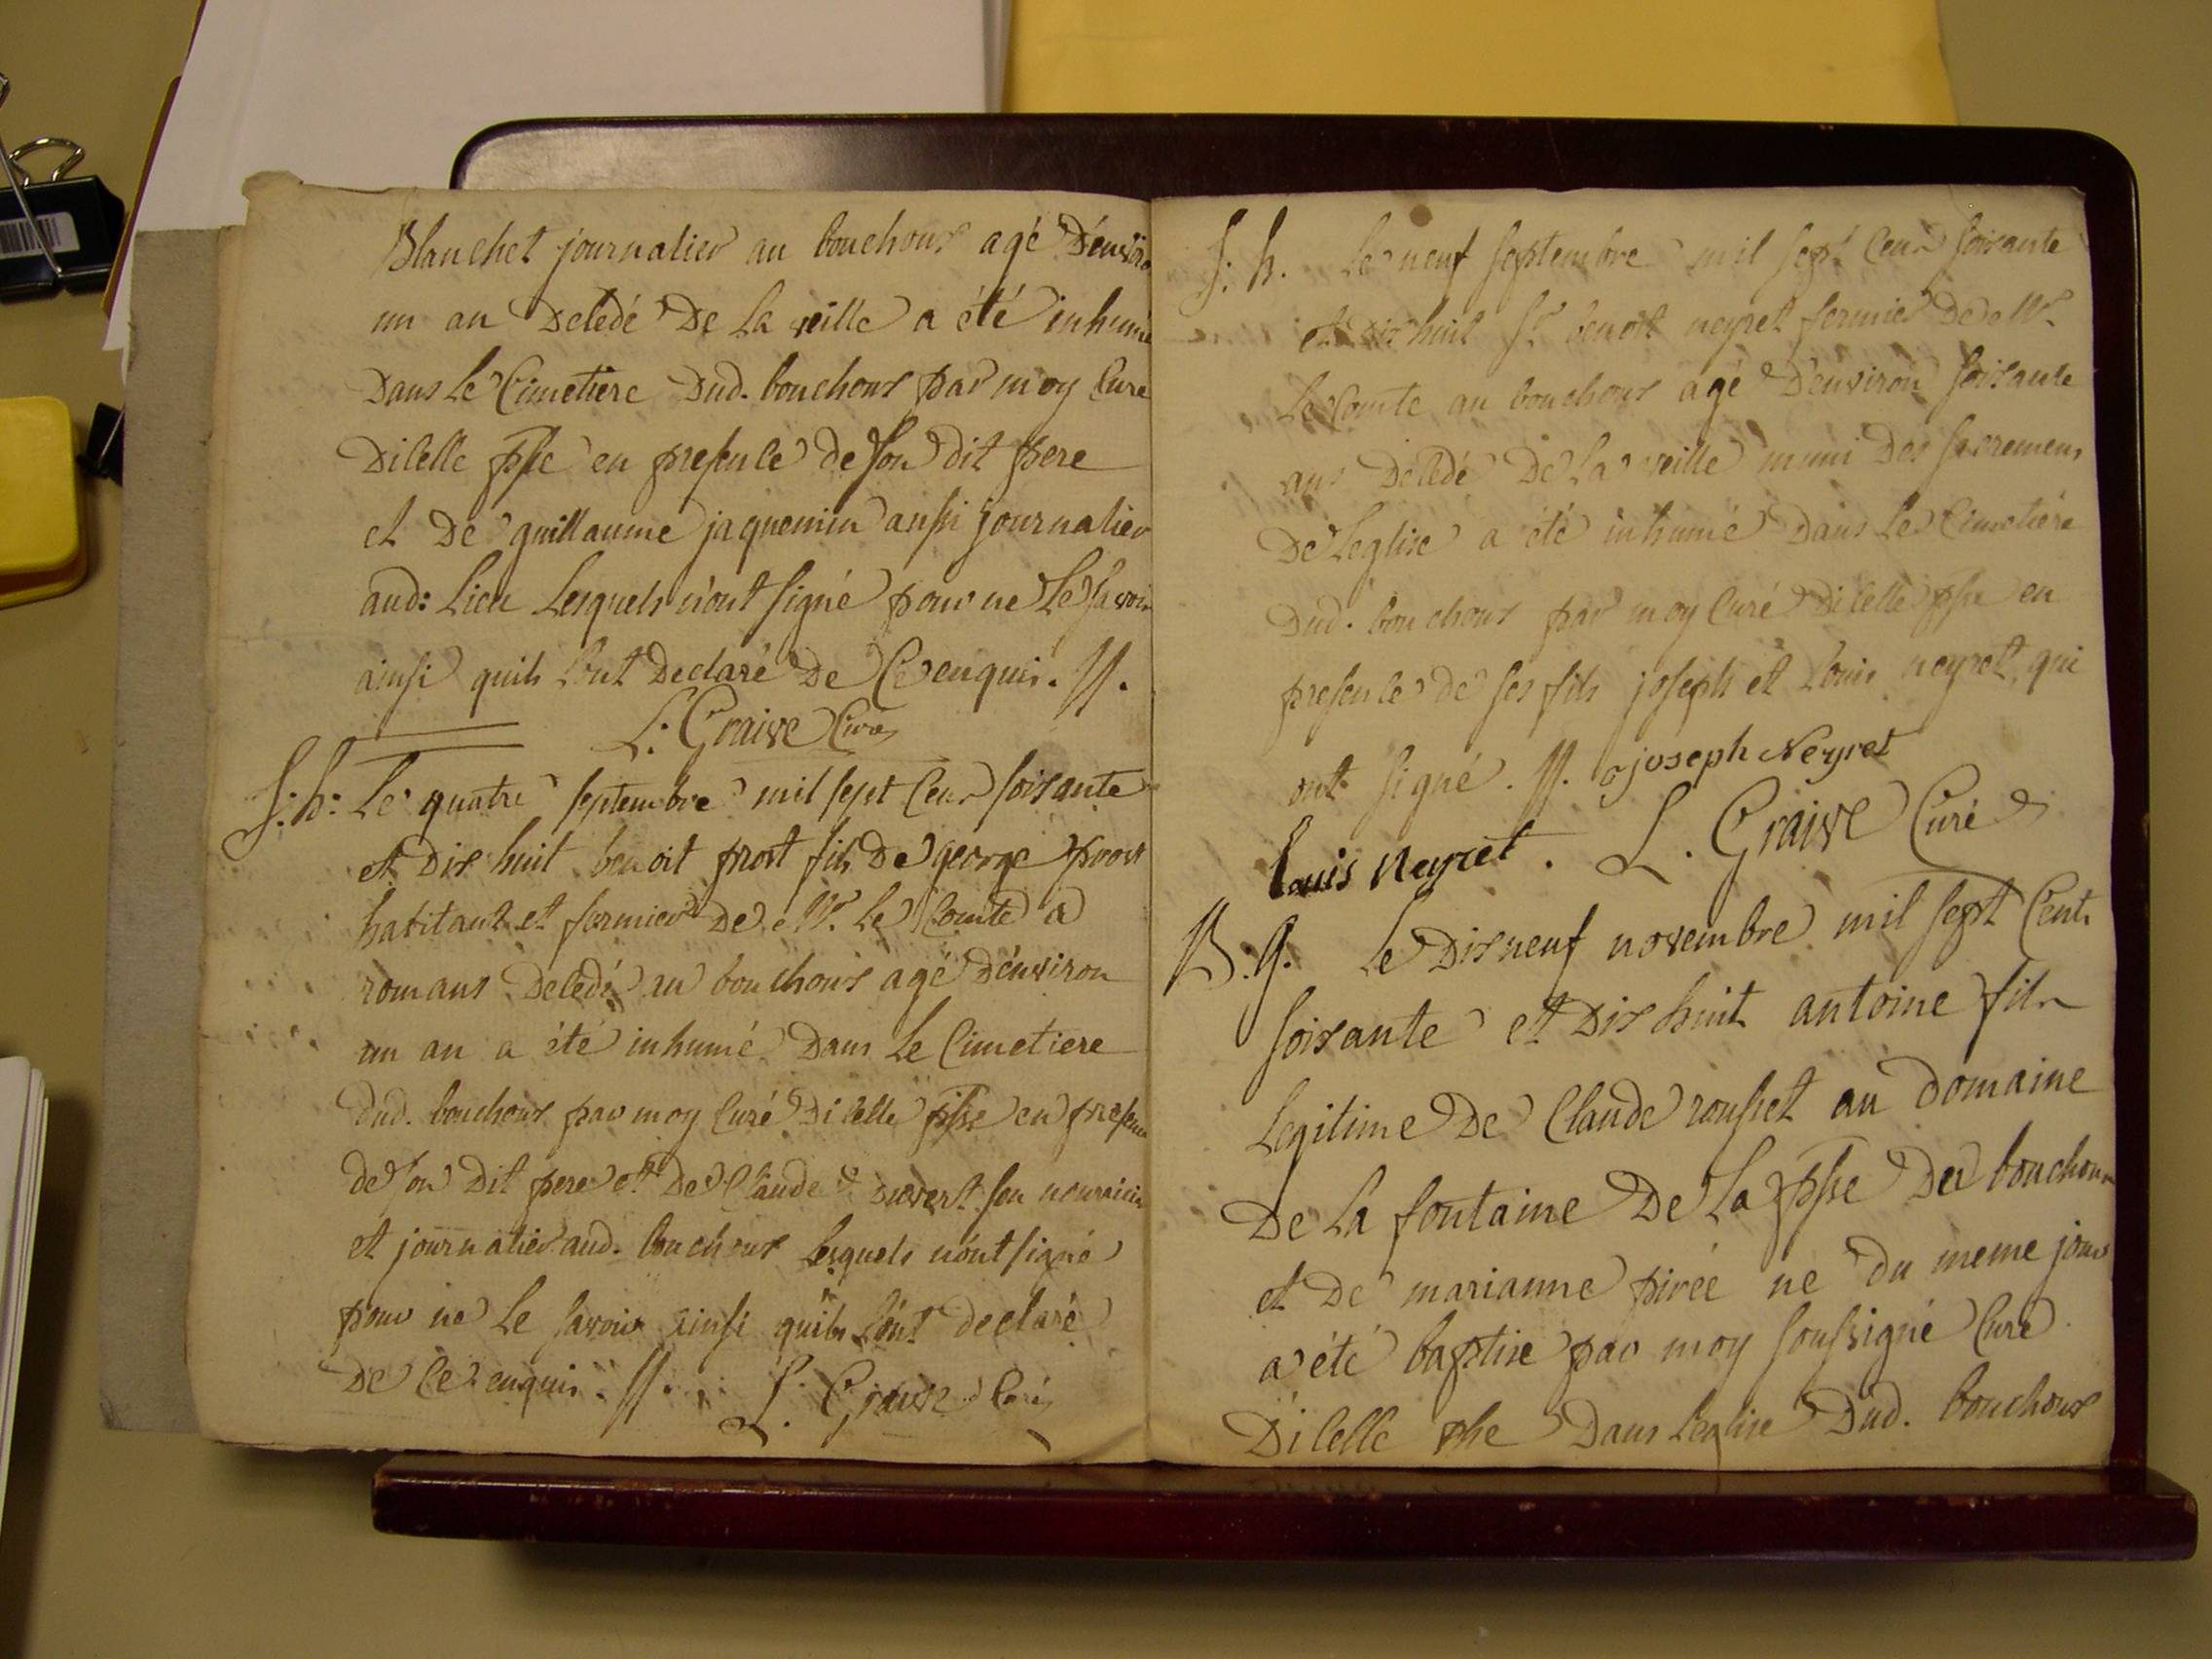 Blanchet journalier au bouchoux agé D'environ
un an Decedé De La veille a été inhumé
Dans Le Cimetiere Dud. bouchoux par moy Curé
Dicelle psse en presence de Son dit pere
et De guillaume jaquemin aussi journalier
aud: Lieu Lesquels n'ont signé pour ne Le Savoir
ainsi quils L'ont Declaré De Ce enquis. //.
L. Graive Curé
S: h: Le quatre septembre mil sept Cent soixante
et Dix huit benoit prost fils De george prost
habitant et fermier De Mr. Le Comte a
romans Decedé au bouchoux agé D'environ
un an a été inhumé Dans Le Cimetiere
Dud. bouchoux par moy Curé Dicelle psse en presence
de Son Dit pere et De Claude ouvert son nourricier
et journalier aud. bouchoux Lesquels n'ont signé
pour ne Le savoir ainsi quils L'ont declaré
De Ce enquis. //. L. Graive Curé
S. h. Le neuf septembre mil sept Cent soixante
et Dix huit Sr. benoit neyret fermier De Mr.
Le Comte au bouchoux agé D'environ soixante
ans Decedé De La veille muni Des sacremens
De Leglise a été inhumé Dans Le Cimetiére
Dud. bouchoux par moy Curé Dicelle psse en
presence de ses fils joseph et Louis neyret, qui
ont signé. //. joseph Neyret
Louis neyret. L. Graive Curé
B. g. Le Dix neuf novembre mil sept Cent
soixante et Dix huit antoine fils
Legitime De Claude rousset au Domaine
De La fontaine De La psse Du bouchoux
et De marianne pirée ne du meme jour
a été baptise par moy soussigné Curé
Dicelle psse Dans Leglise Dud. bouchoux